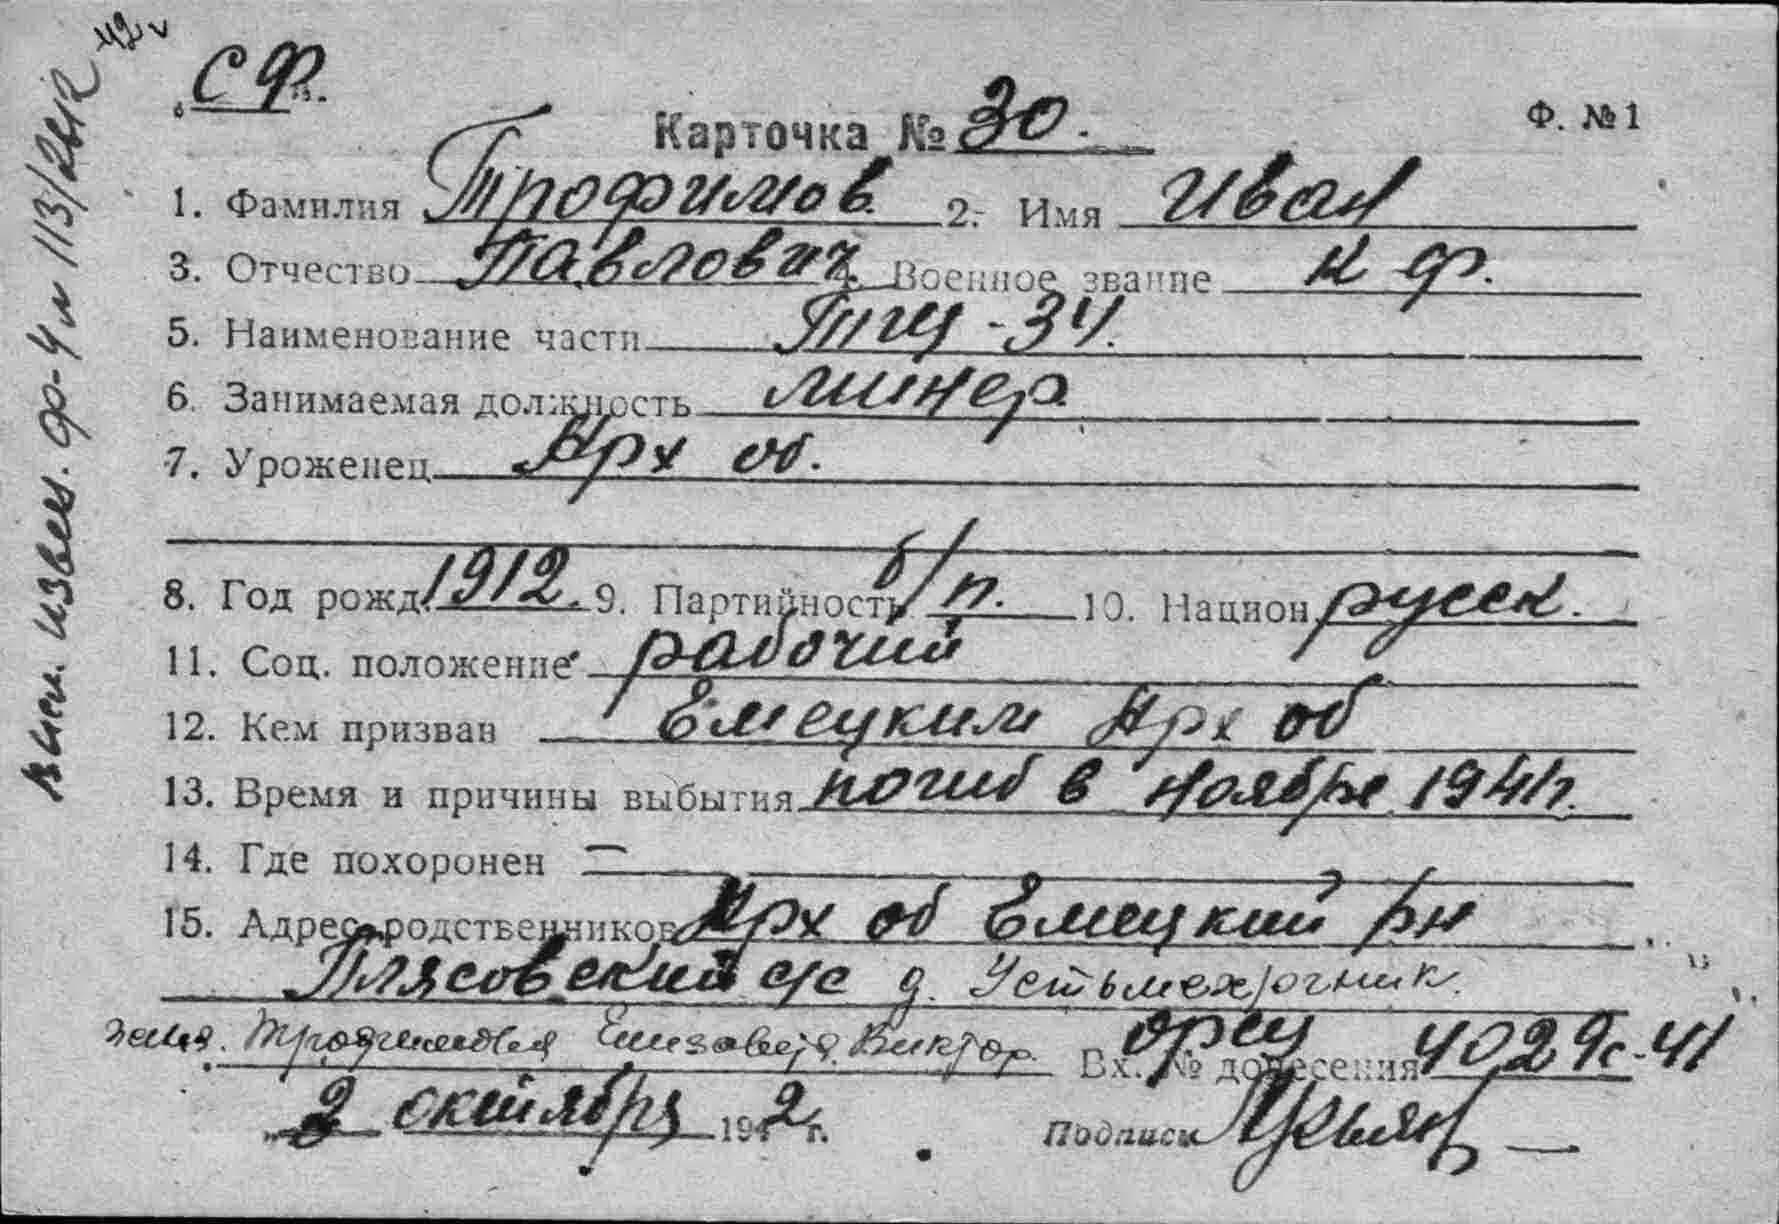 СФ.
Карточка № 30. Ф. №1
1. Фамилия Трофимов. 2. Имя Иван
3. Отчество Павлович 4. Военное звание к ф.
5. Наименование части Тщ-34.
6. Занимаемая должность минер.
7. Уроженец Арх об.
8. Год рожд. 1912. 9. Партийность б/п. 10. Национ. русск.
11. Соц. положение рабочий
12. Кем призван Емецким Арх об
13. Время и причины выбытия погиб в ноябре 1941г.
14. Где похоронен —
15. Адрес родственников Арх об Емецкий рн
Плясовский с/с д.
жена. Трофимова Елизавета Виктор. Вх. № донесения 4029с-41
2 октября 1942 г. Подпись
извещ. ф-4 № 113/